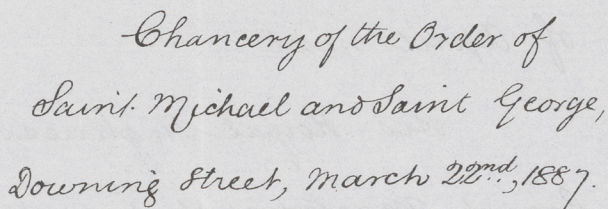 Chancery of the Order of
Saint Michael and Saint George,
Downing Street, March 22nd, 1887.